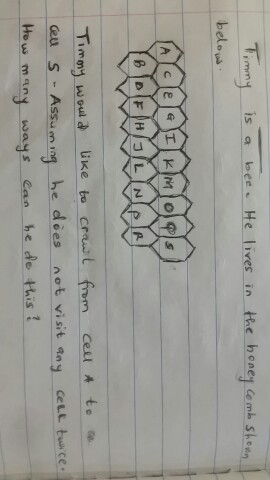 Timmy is a bee. He lives in the honey comb shown
below.
A C E G I K M O Q S
B D F H J L N P R
Timmy would like to crawl from cell A to
cell S - Assuming he does not visit any cell twice.
How many ways can he do this?